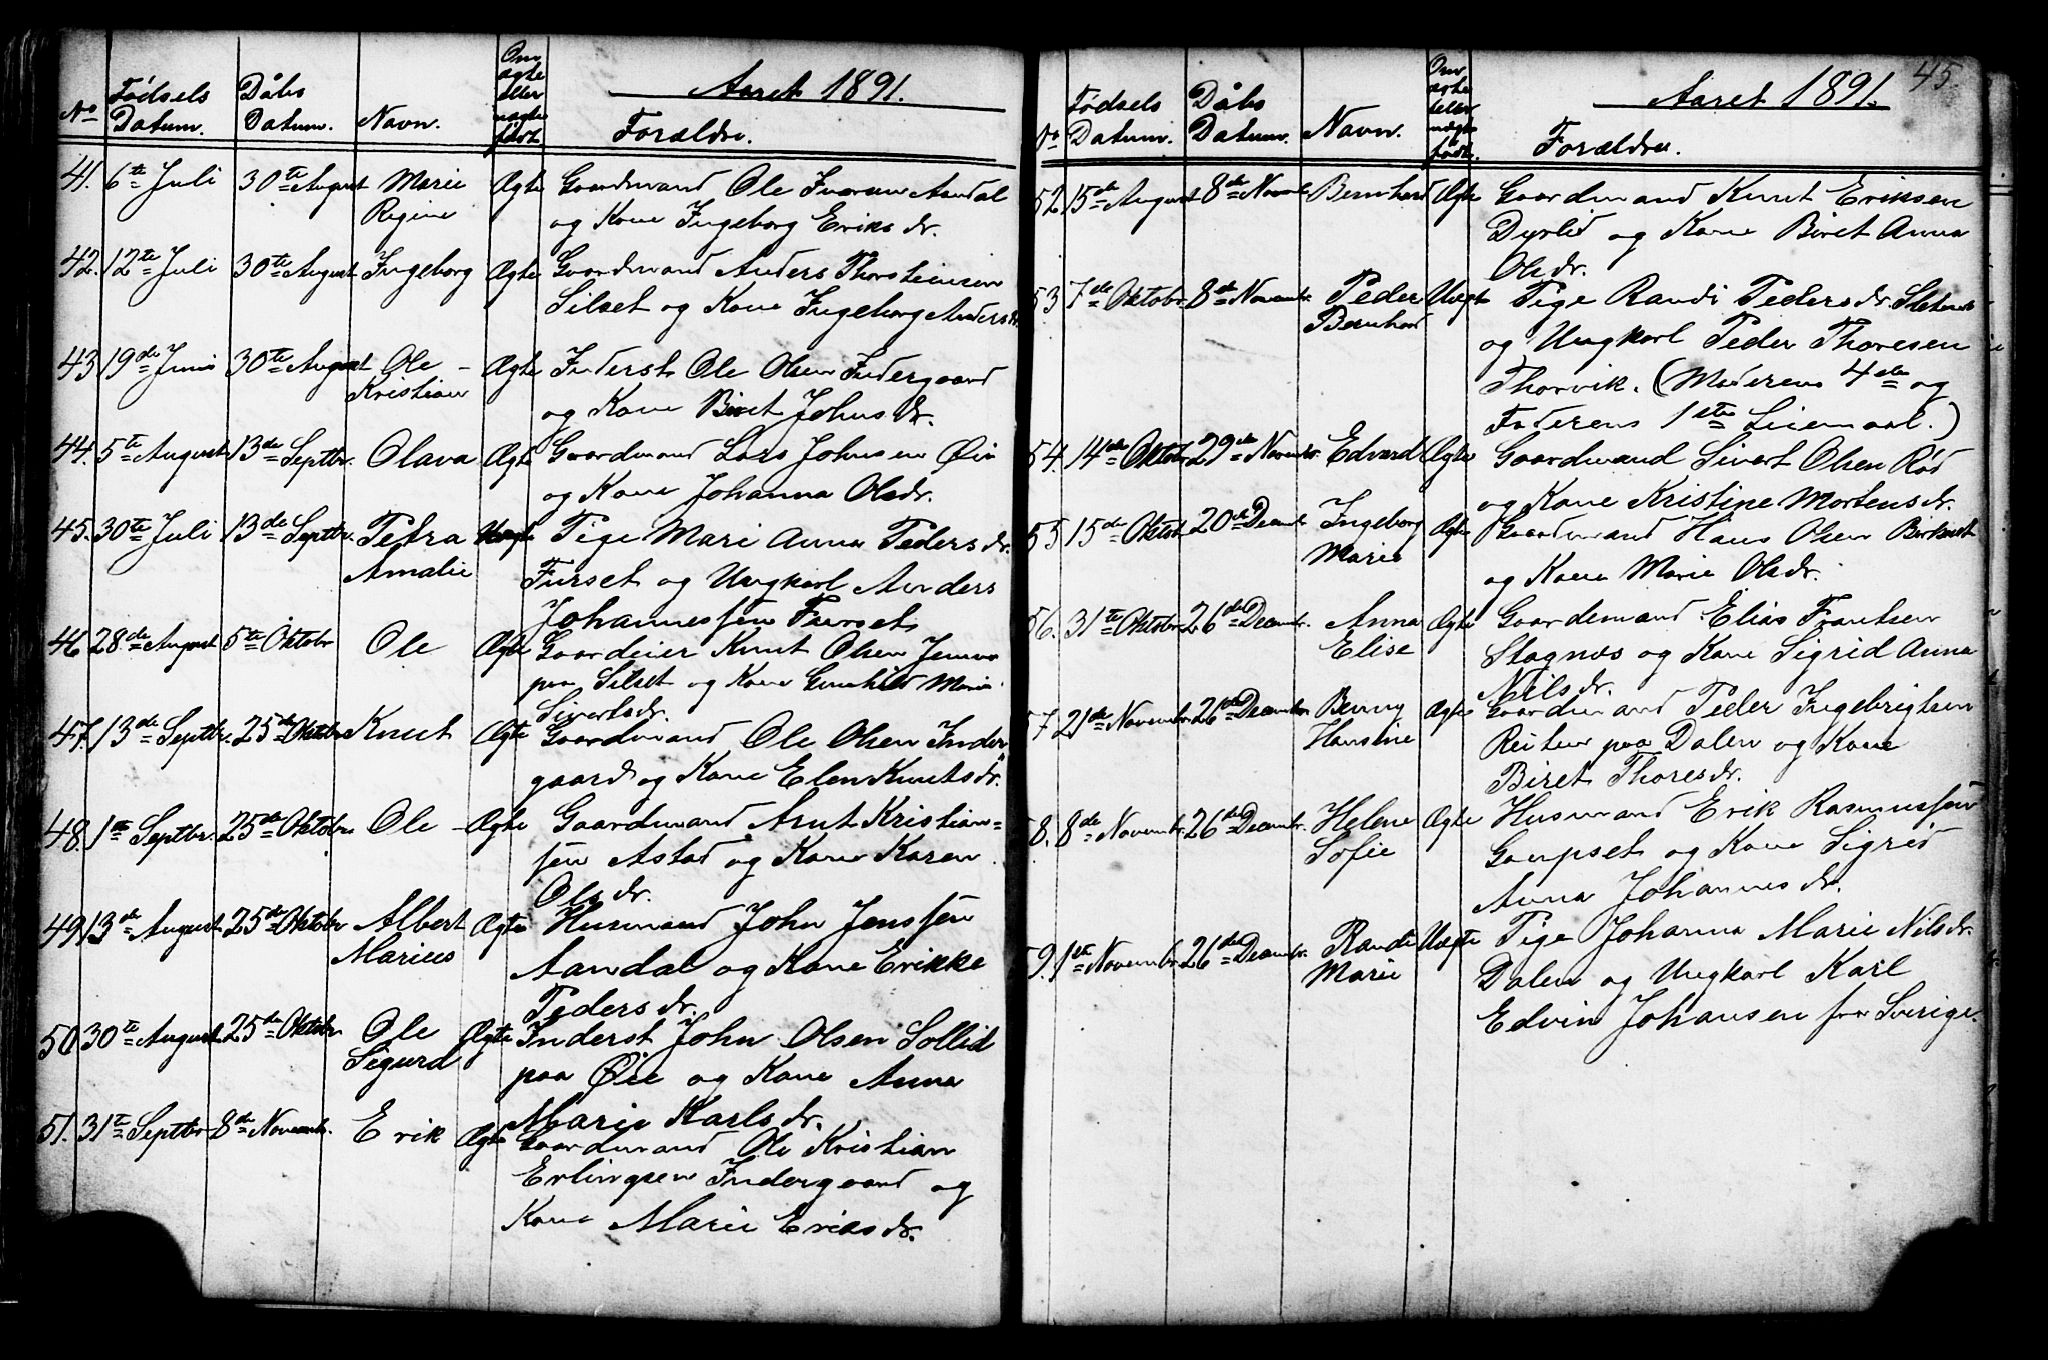 Aaret 1891.
No Fødsels Datum. Dåbs Datum. Navn. Om ægte eller uægte født. Forældre.
41. 6te Juli 30te August Marie Ægte Gaardmand Ole Iversen Aandal
Regine og Kone Ingeborg Eriksdr.
42. 12te Juli 30te August Ingeborg Ægte Gaardmand Anders Thorsteinsen
Silset og Kone Ingeborg Andersdr.
43 19de Juni 30te August Ole - Ægte Inderst Ole Olsen Indergaard
Kristian og Kone Biret Johnsdr.
44. 5te August 13de Septbr. Olava Ægte Gaardmand Lars Johnsen Øie
og Kone Johanna Olsdr.
45. 30te Juli 13de Septbr. Petra Uægte Pige Mari Anna Pedersdr.
Amalie Furset og Ungkarl Anders
Johannessen Furset
46 28de August 5te Oktobr Ole Ægte Gaardeier Knut Olsen
paa Silset og Kone Gunhild Marie
Sivertsdr.
47. 13de Septbr. 25de Oktobr Knut Ægte Gaardmand Ole Olsen Inder
gaard og Kone Elen Knutsdr.
48. 1te Septbr. 25de Oktobr. Ole - Ægte Gaardmand Knut Kristian=
sen Astad og Kone Karen
Olsdr.
49 13de August 25de Oktobr Albert Ægte Husmand John Jenssen
Marius Aandal og Kone Erikke
Pedersdr.
50 30te August 25de Oktobr. Ole Ægte Inderst John Olsen Sollid
Sigurd paa Øie og Kone Anna
Marie Karlsdr.
51. 31te Septbr 8de Novembr. Erik Ægte Gaardmand Ole Kristian
Erlingsen Indergaard og
Kone Marie Eriksdr.
45.
Aaret 1891.
No Fødsels Datum. Dåbs Datum. Navn. Om ægte eller uægte født. Forældre.
52. 15de August 8de Novembr Bernhard Ægte Gaardmand Knut Eriksen
Dyrlid og Kone Biret Anna
Olsdr.
53 7de Oktobr. 8de Novembr. Peder Uægte Pige Randi Pedersdr.
Bernhard og Ungkarl Peder Thoresen
Thorvik. (Moderens 4de og
Faderens 1ste Leiermaal.)
54. 14de Oktobr 29de Novembr. Edvard Ægte Gaardmand Sivert Olsen Rød
og Kone Kristine Mortensdr.
55 15de Oktobr. 20de Decembr Ingeborg Ægte Gaardmand Hans Olsen
Marie og Kone Marie Olsdr.
56. 31te Oktobr. 26de Decembr. Anna Ægte Gaardemand Elias Frantsen
Elise Stagnæs og Kone Sigrid Anna
Nilsdr.
57. 21de Novembr. 26de Decembr. Benny Ægte Gaardmand Peder Ingebrigtsen
Hansine Reiten paa Dalen og Kone
Biret Thoresdr.
58. 8de Novembr. 26de Decembr. Helene Ægte Husmand Erik Rasmussen
Sofie Gaupset og Kone Sigrid
Anna Johannesdr.
59. 1ste Novembr 26de Decembr. Randi Uægte Pige Johanna Marie Nilsdr.
Marie Dalen og Ungkarl Karl
Edvin Johansen fra Sverige.